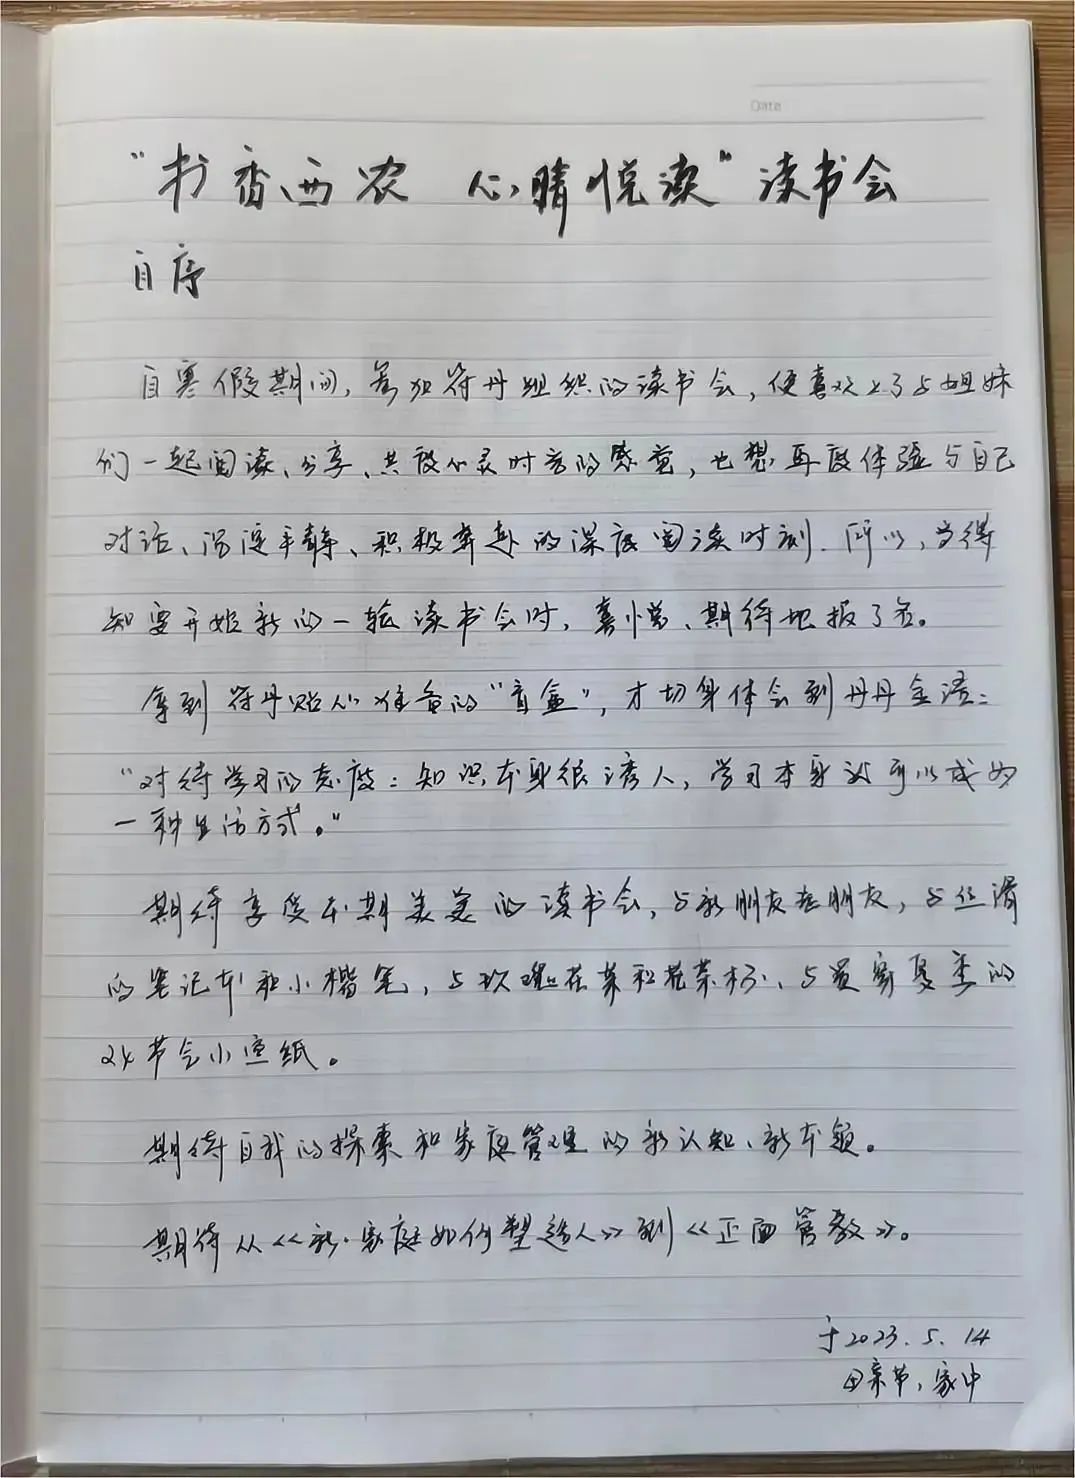 Date
“书香西农 心晴悦读”读书会
自序
自寒假期间，参加符丹组织的读书会，便喜欢上了与姐妹
们一起阅读、分享、共度心灵时光的感觉，也想再度体验与自己
对话、沉淀平静、积极奔赴的深度阅读时刻.所以，当得
知要开始新的一轮读书会时，喜悦、期待地报了名。
拿到符丹贴心准备的“盲盒”，才切身体会到丹丹金语：
“对待学习的态度：知识本身很诱人，学习本身就可以成为
一种生活方式。”
期待享受本期美美的读书会，与新朋友老朋友，与丝滑
的笔记本和小楷笔，与玫瑰花茶和花茶杯、与
24节会小宣纸。
期待自我的探索和家庭管理的新认知、新本领。
期待从《新·家庭如何塑造人》到《正面管教》。
于2023.5.14
母亲节，家中